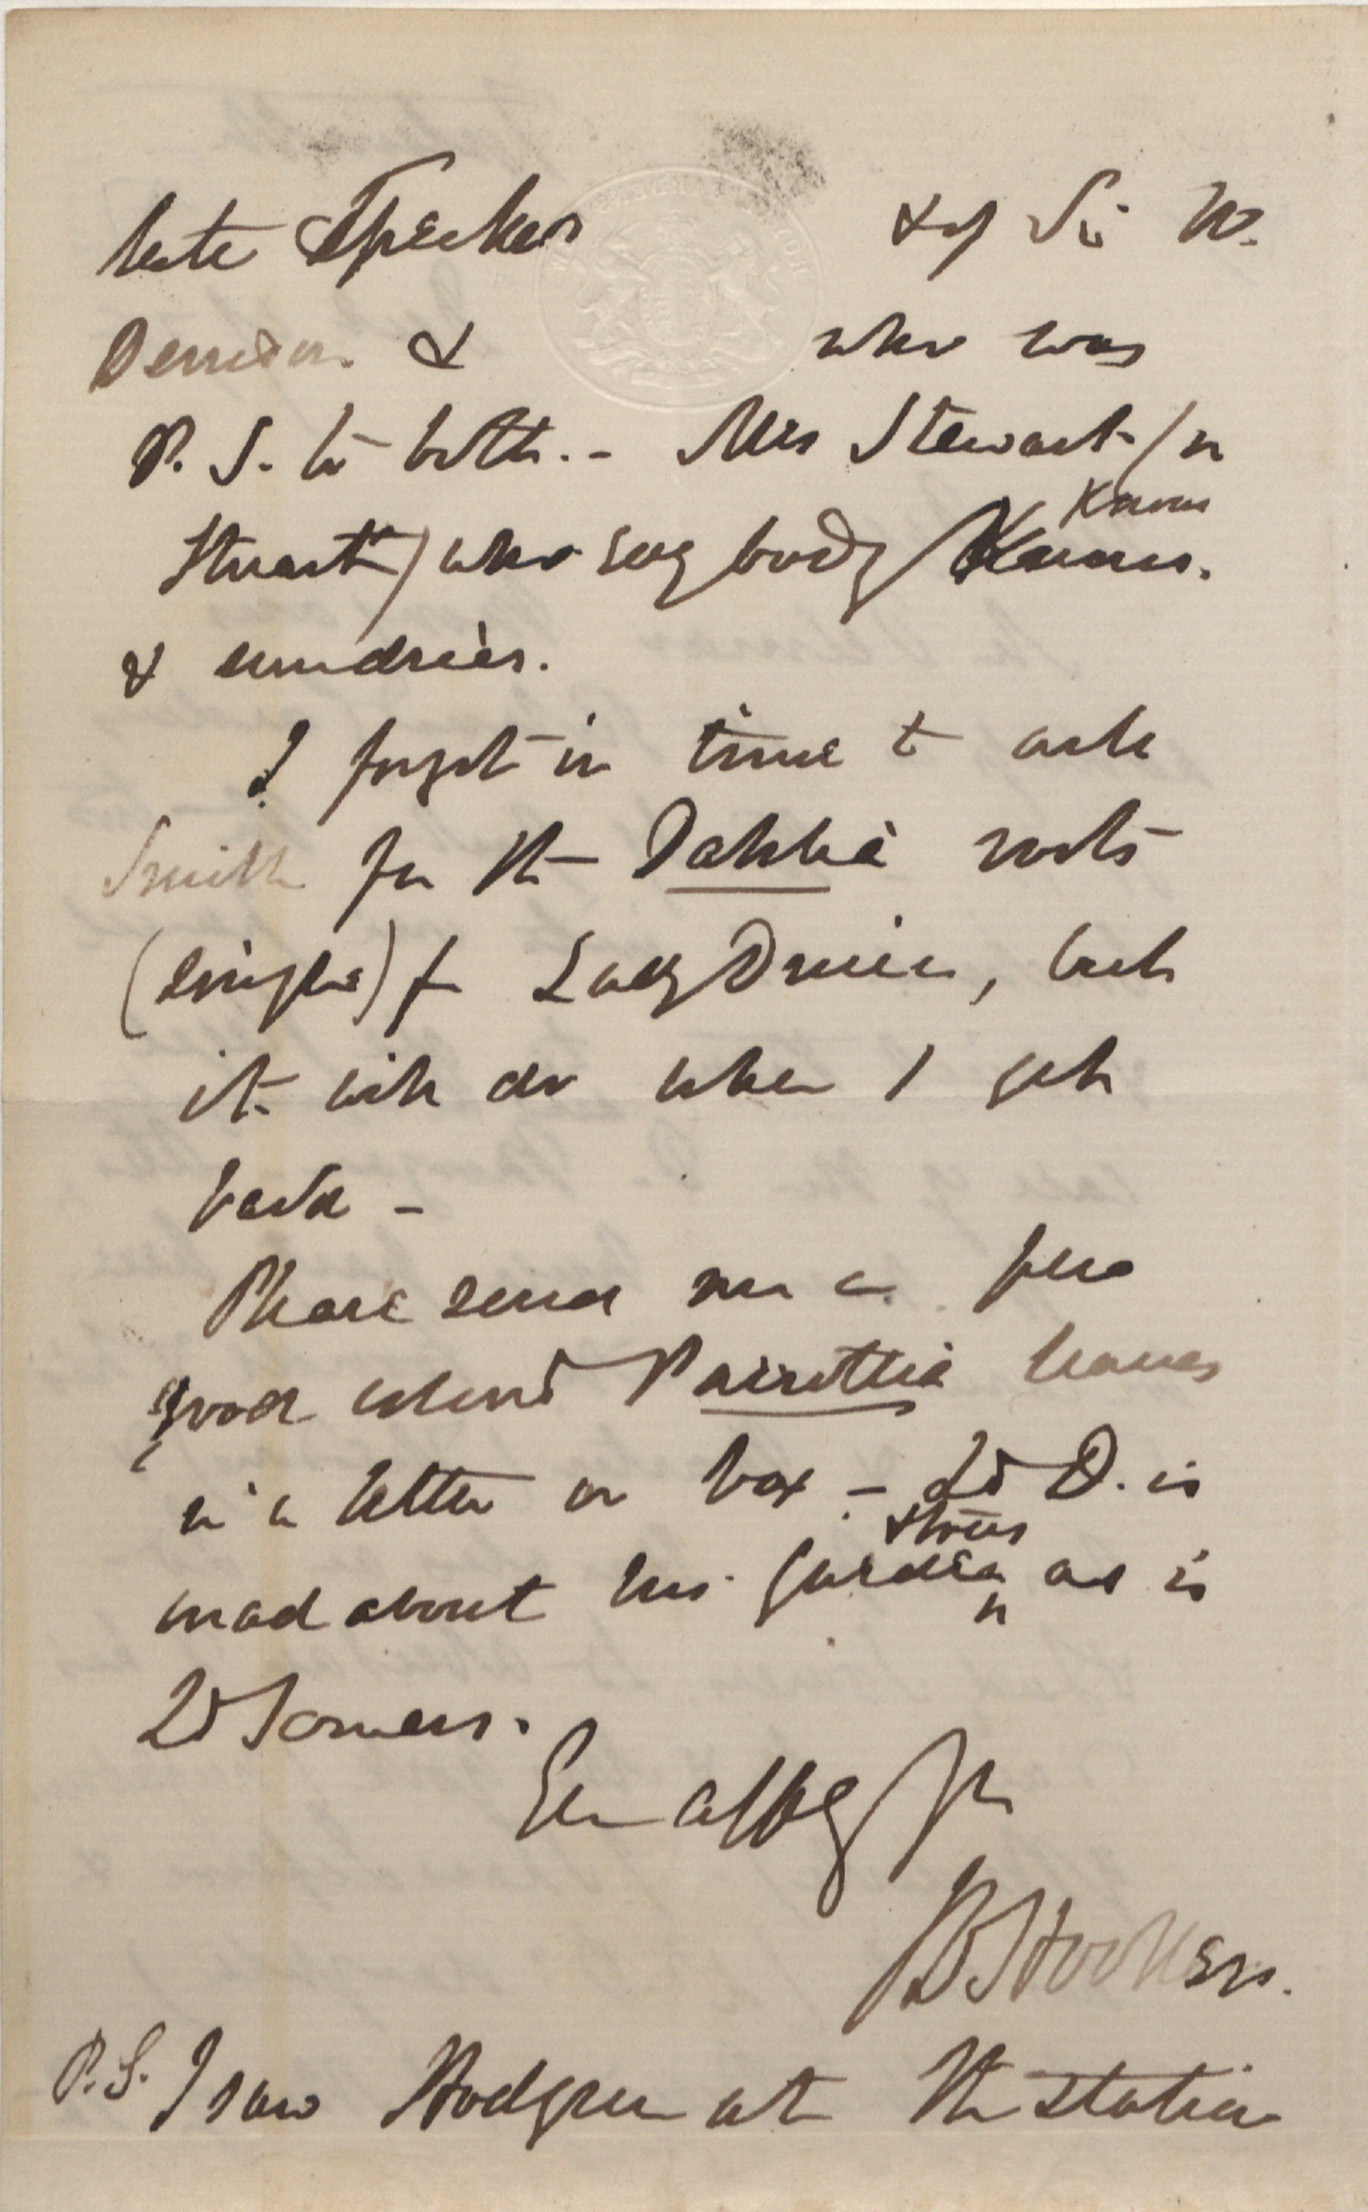 late Speaker & of Sir W.
Denison & who was
P. S. to both. - Mrs Stewart (or
Stuart) who every body knows
Knows.
& sundries.
I forgot in time to ask
Smith for the Dahlia roots
(single) for Lady Ducie, but
it will do when I get
back -
Please send me a few
good colored Parrottia leaves
in a letter or box - Ld D. is
mad about his garden & trees as is
Ld Somers.
Ever aff
JD Hooker.
P.S. I saw Hodgson at the station